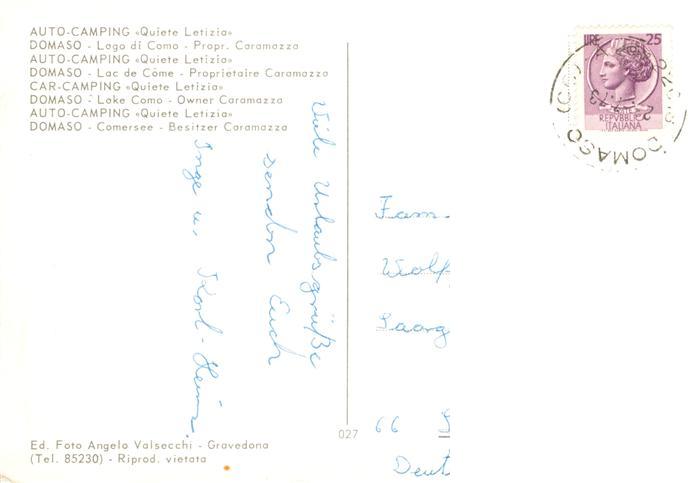 AUTO-CAMPING «Quiete Letizia»
DOMASO - Lago di Como - Propr. Caramazza
AUTO-CAMPING «Quiete Letizia»
DOMASO - Lac de Côme - Proprietaire Caramazza
CAR-CAMPING «Quiete Letizia»
DOMASO - Lake Como - Owner Caramazza
AUTO-CAMPING «Quiete Letizia»
DOMASO - Comersee - Besitzer Caramazza
Viele Urlaubsgrüße
senden Euch
Inge u. Karl-Heinz
Fam.
Wolf
Saarg
66 S
Deut
027
Ed. Foto Angelo Valsecchi - Gravedona
(Tel. 85230) - Riprod. vietata
LIRE 25
REPVBBLICA
ITALIANA
DOMASO